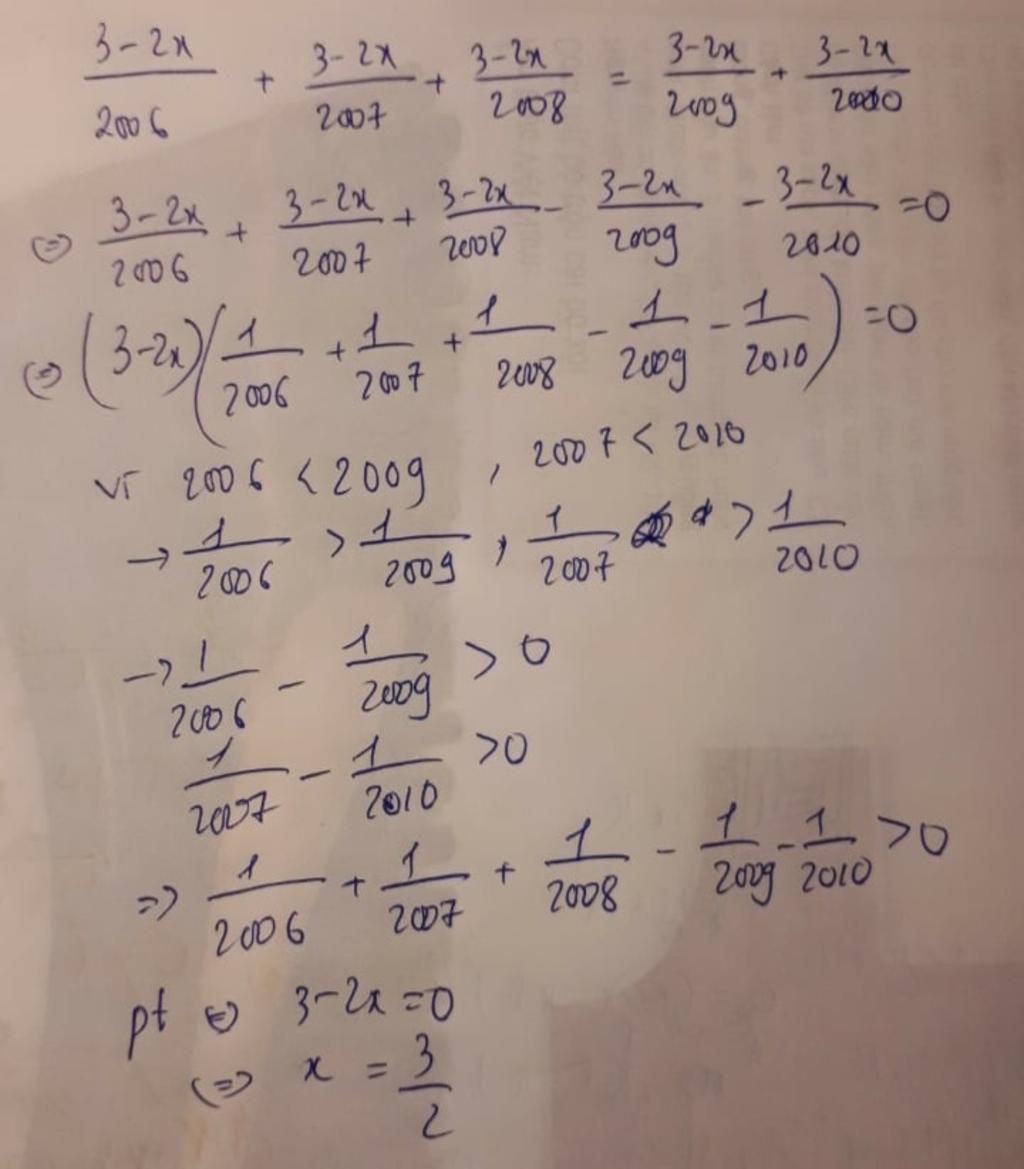 (3-2x)/2006 + (3-2x)/2007 + (3-2x)/2008 = (3-2x)/2009 + (3-2x)/2010
⇔ (3-2x)/2006 + (3-2x)/2007 + (3-2x)/2008 - (3-2x)/2009 - (3-2x)/2010 = 0
⇔ (3-2x)(1/2006 + 1/2007 + 1/2008 - 1/2009 - 1/2010) = 0
vì 2006 < 2009 , 2007 < 2010
→ 1/2006 > 1/2009 , 1/2007 > 1/2010
→ 1/2006 - 1/2009 > 0
1/2007 - 1/2010 > 0
⇒ 1/2006 + 1/2007 + 1/2008 - 1/2009 - 1/2010 > 0
pt ⇔ 3-2x = 0
⇔ x = 3/2